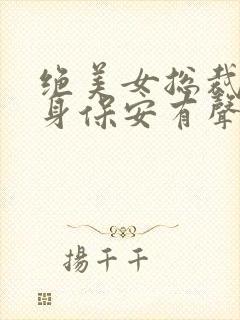 绝美女总裁
身保安有聲
揚千千